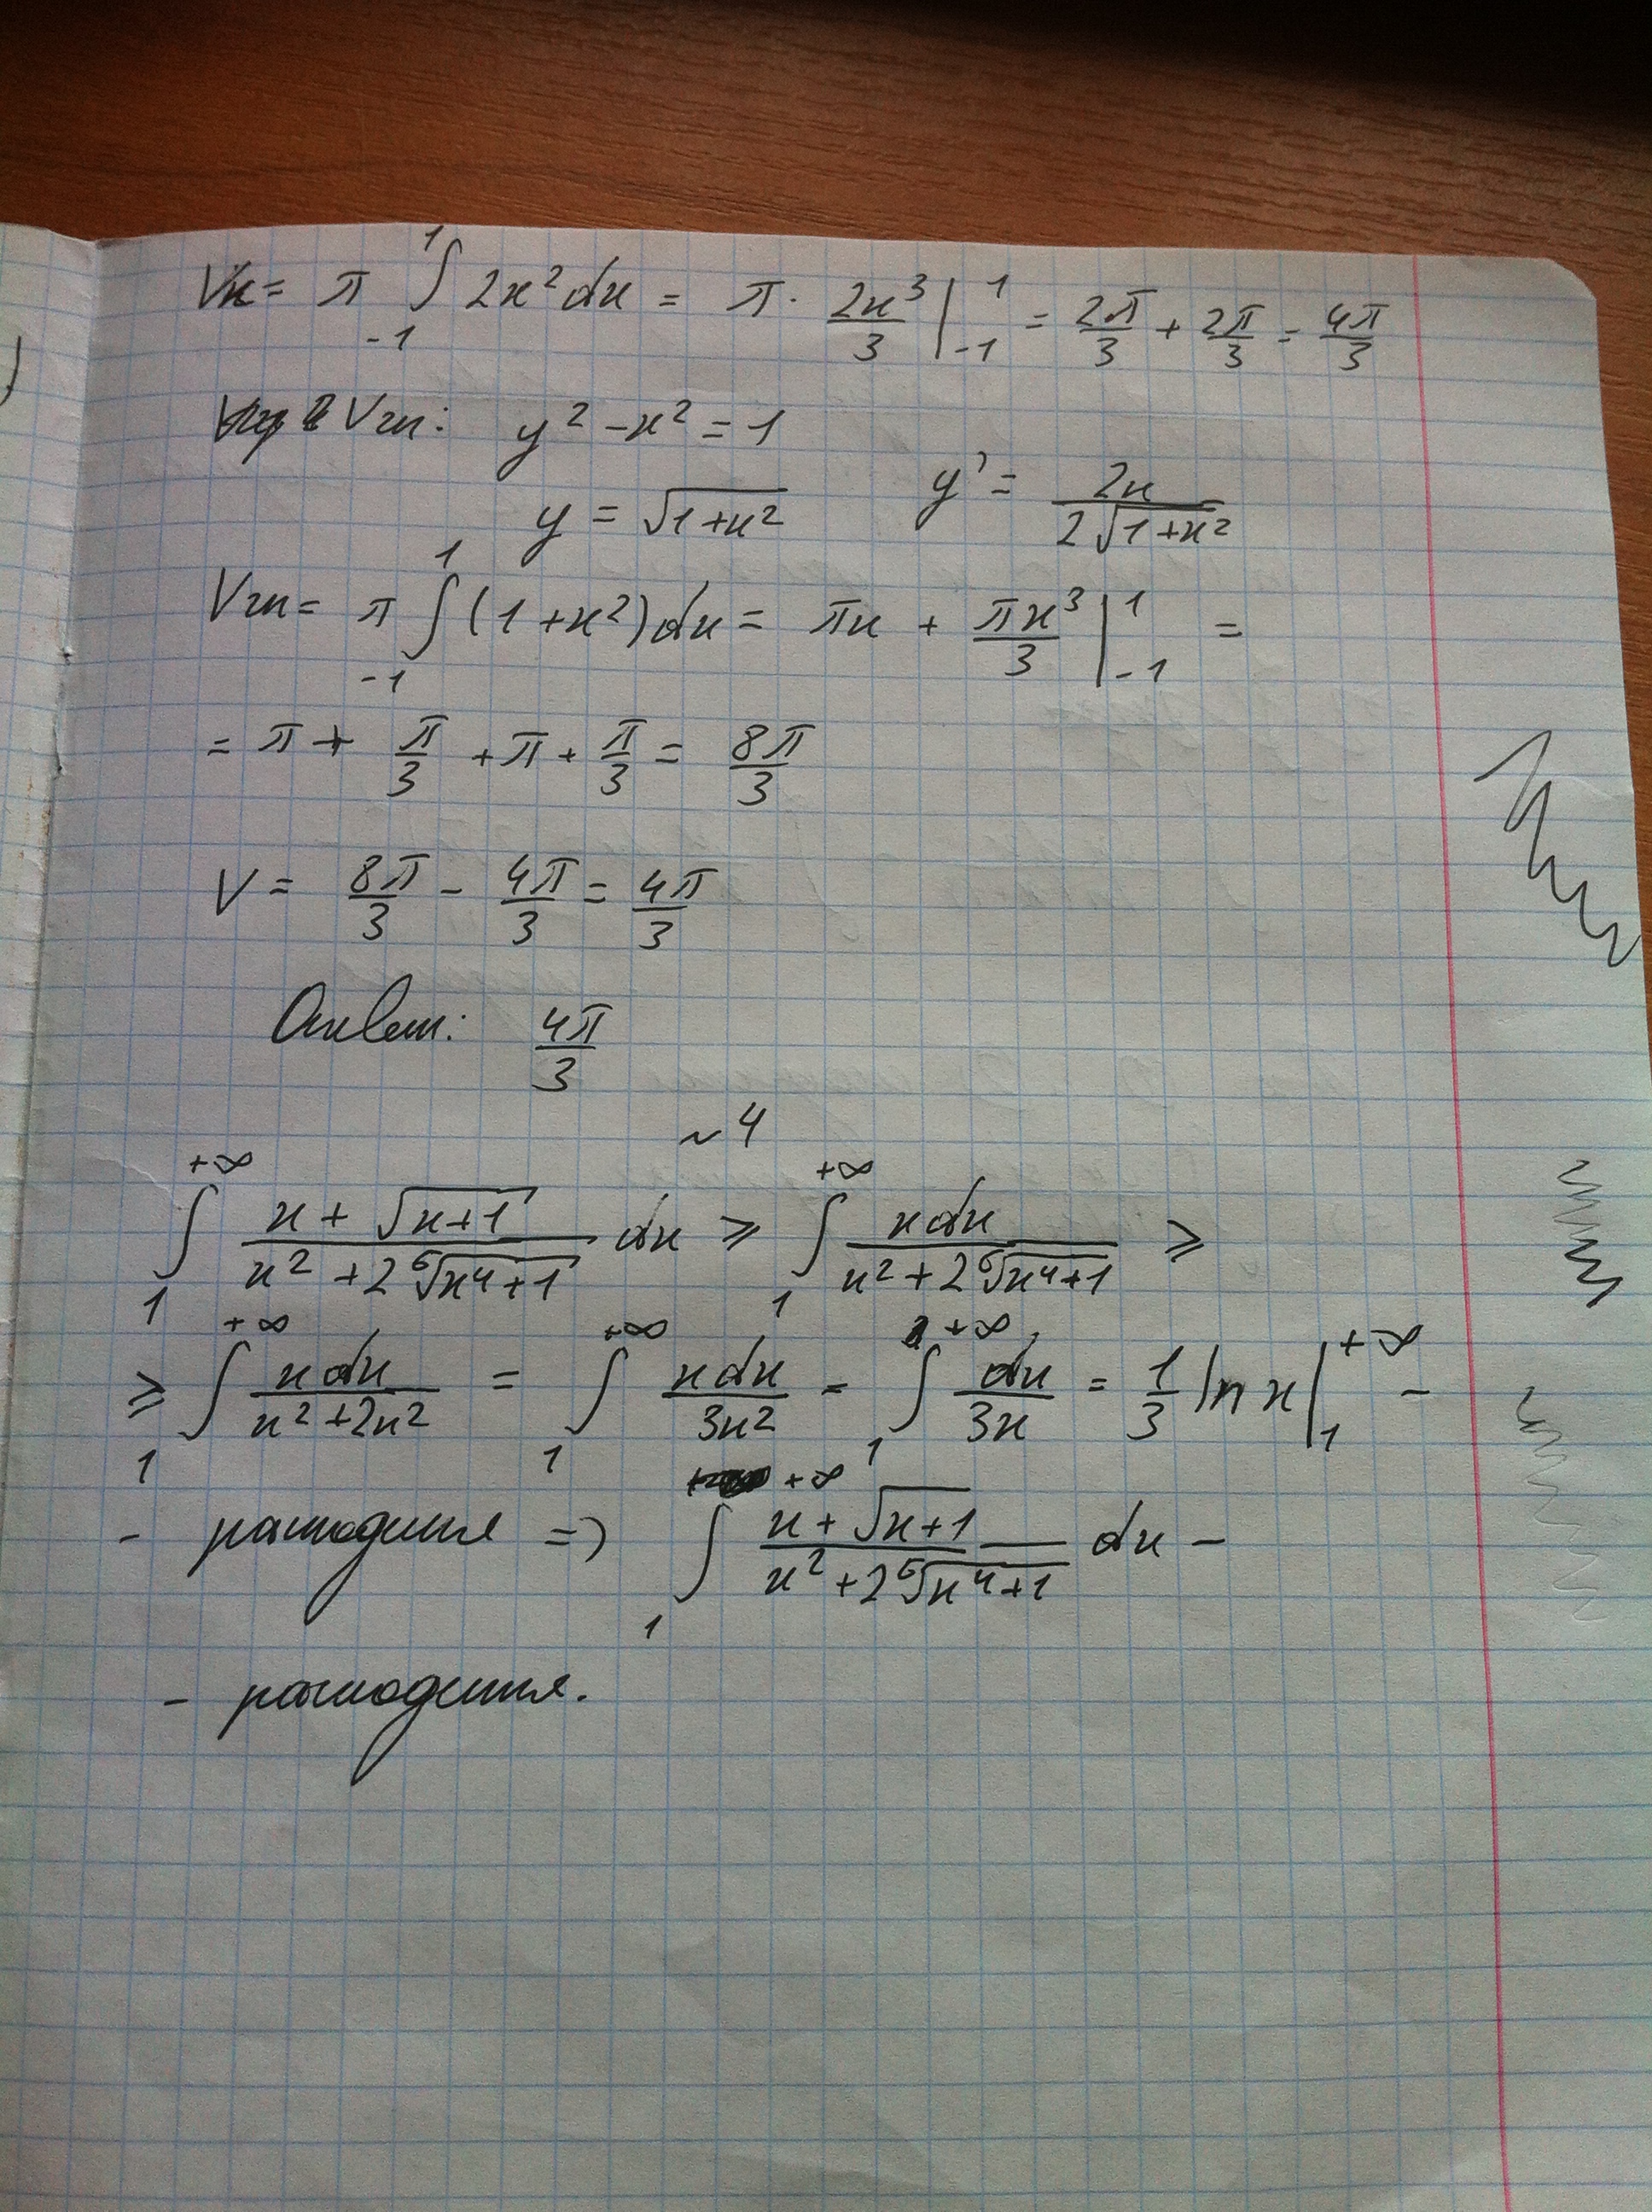 Vк = π ∫₋₁¹ 2x² dx = π · 2x³/3 |₋₁¹ = 2π/3 + 2π/3 = 4π/3
Vгип: y² - x² = 1
y = √(1+x²) y' = 2x/(2√(1+x²))
Vгип = π ∫₋₁¹ (1+x²) dx = πx + πx³/3 |₋₁¹ =
= π + π/3 + π + π/3 = 8π/3
V = 8π/3 - 4π/3 = 4π/3
Ответ: 4π/3
~4
∫₁^{+∞} (x + √(x+1))/(x² + 2⁵√(x⁴+1)) dx ⩾ ∫₁^{+∞} x dx/(x² + 2⁵√(x⁴+1)) ⩾
⩾ ∫₁^{+∞} x dx/(x²+2x²) = ∫₁^{+∞} x dx/(3x²) = ∫₁^{+∞} dx/(3x) = 1/3 ln x |₁^{+∞} -
- расходится => ∫₁^{+∞} (x + √(x+1))/(x² + 2⁵√(x⁴+1)) dx -
- расходится.